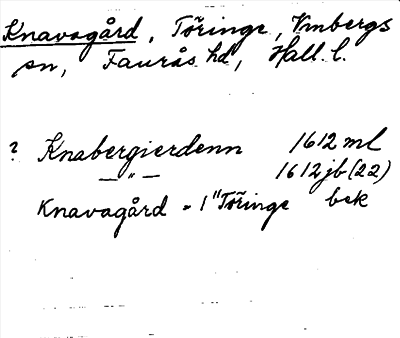 Knavagård, Töringe, Vinbergs
sn, Faurås hd, Hall. l.
? Knabergierdenn 1612 ml
— " — 1612 jb (22)
Knavagård = 1 "Töringe bek